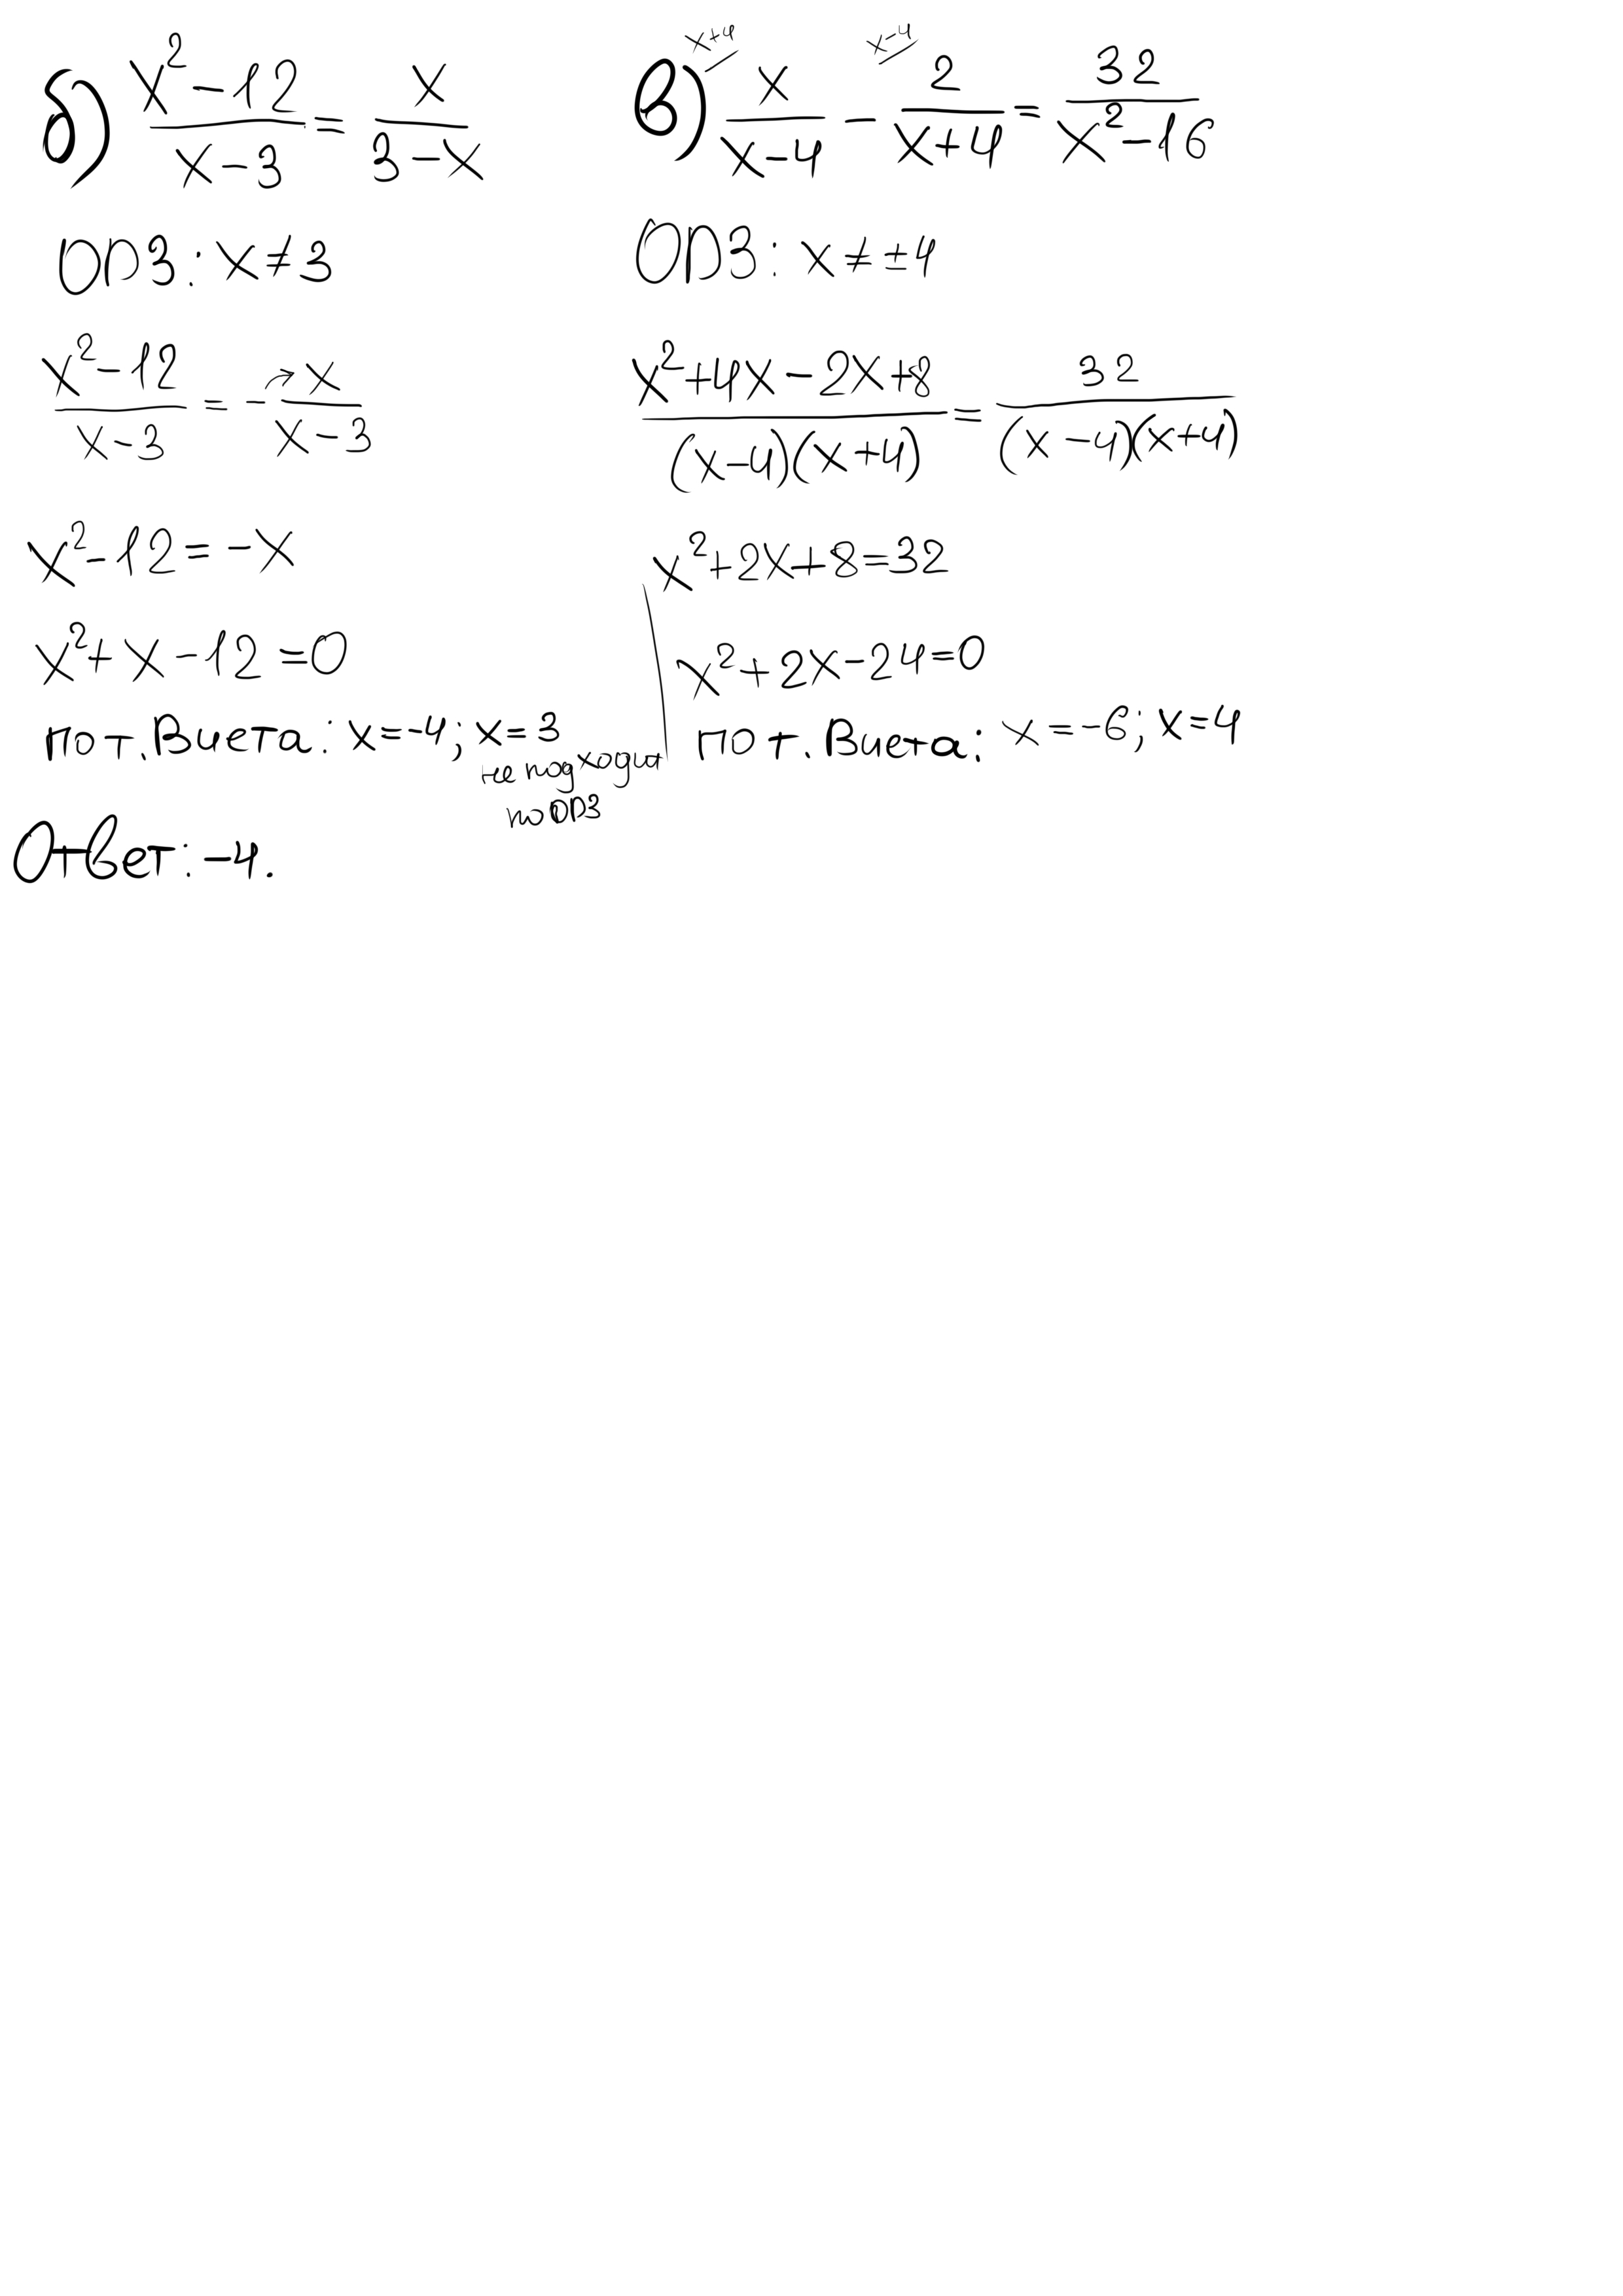 б) (x² - 12)/(x - 3) = x/(3 - x)
ОДЗ: x ≠ 3
(x² - 12)/(x - 3) = - x/(x - 3)
x² - 12 = - x
x² + x - 12 = 0
по т. Виета: x = -4; x = 3
не подходит
по ОДЗ
Ответ: -4.
x+4 x-4
в) x/(x - 4) - 2/(x + 4) = 32/(x² - 16)
ОДЗ: x ≠ ±4
(x² + 4x - 2x + 8)/((x - 4)(x + 4)) = 32/((x - 4)(x + 4))
x² + 2x + 8 = 32
x² + 2x - 24 = 0
по т. Виета: x = -6; x = 4